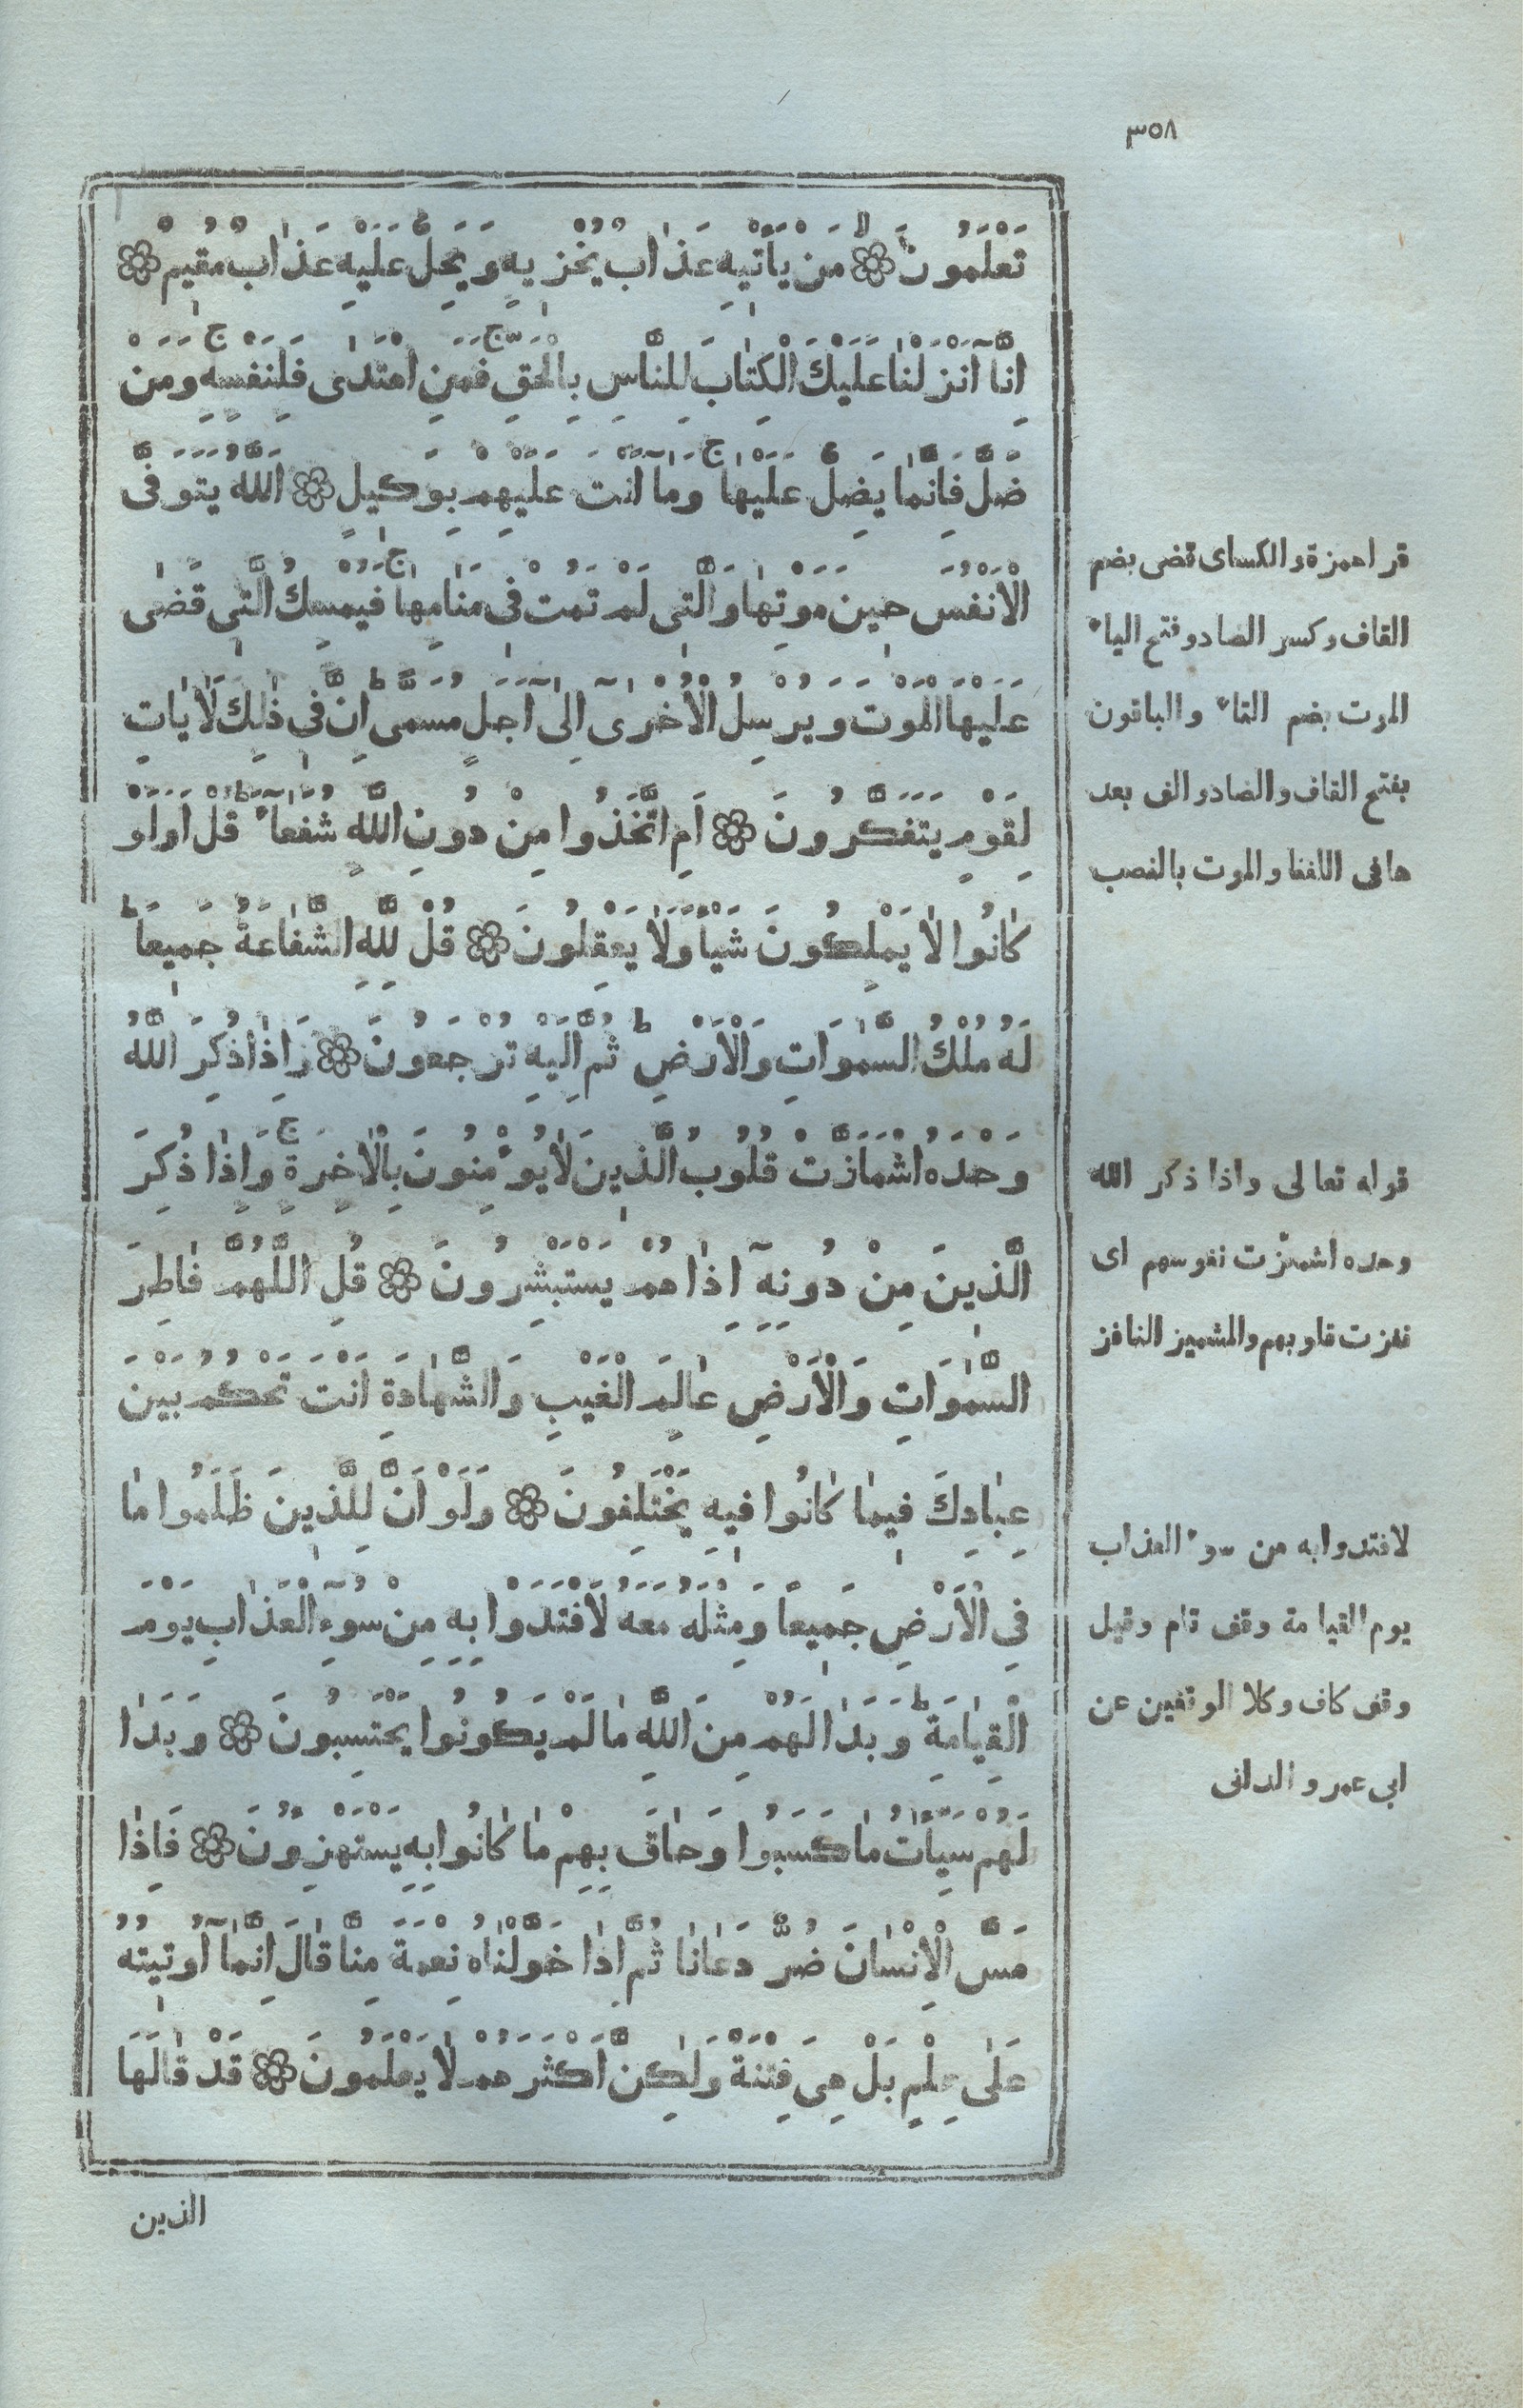 ٣٥٨
تَعْلَمُونَ ۝ مَنْ يَأْتِيهِ عَذَابٌ يُخْزِيهِ وَيَحِلُّ عَلَيْهِ عَذَابٌ مُقِيمٌ ۝
اِنَّآ اَنْزَلْنَا عَلَيْكَ الْكِتَابَ لِلنَّاسِ بِالْحَقِّ ج فَمَنِ اهْتَدٰى فَلِنَفْسِهِ ج وَمَنْ
ضَلَّ فَاِنَّمَا يَضِلُّ عَلَيْهَا ج وَمَآ اَنْتَ عَلَيْهِمْ بِوَكِيلٍ ۝ اَللّٰهُ يَتَوَفَّى
الْاَنْفُسَ حِينَ مَوْتِهَا وَالَّتِى لَمْ تَمُتْ فِى مَنَامِهَا ج فَيُمْسِكُ الَّتِى قَضٰى
عَلَيْهَا الْمَوْتَ وَيُرْسِلُ الْاُخْرٰىٓ اِلٰىٓ اَجَلٍ مُسَمًّى ط اِنَّ فِى ذٰلِكَ لَاٰيَاتٍ
لِقَوْمٍ يَتَفَكَّرُونَ ۝ اَمِ اتَّخَذُوا مِنْ دُونِ اللّٰهِ شُفَعَآءَ ط قُلْ اَوَلَوْ
كَانُوا لَا يَمْلِكُونَ شَيْـًٔا وَلَا يَعْقِلُونَ ۝ قُلْ لِلّٰهِ الشَّفَاعَةُ جَمِيعًا ط
لَهُ مُلْكُ السَّمٰوَاتِ وَالْاَرْضِ ط ثُمَّ اِلَيْهِ تُرْجَعُونَ ۝ وَاِذَا ذُكِرَ اللّٰهُ
وَحْدَهُ اشْمَاَزَّتْ قُلُوبُ الَّذِينَ لَا يُؤْمِنُونَ بِالْاٰخِرَةِ ج وَاِذَا ذُكِرَ
الَّذِينَ مِنْ دُونِهِٓ اِذَا هُمْ يَسْتَبْشِرُونَ ۝ قُلِ اللّٰهُمَّ فَاطِرَ
السَّمٰوَاتِ وَالْاَرْضِ عَالِمَ الْغَيْبِ وَالشَّهَادَةِ اَنْتَ تَحْكُمُ بَيْنَ
عِبَادِكَ فِيمَا كَانُوا فِيهِ يَخْتَلِفُونَ ۝ وَلَوْ اَنَّ لِلَّذِينَ ظَلَمُوا مَا
فِى الْاَرْضِ جَمِيعًا وَمِثْلَهُ مَعَهُ لَافْتَدَوْا بِهِ مِنْ سُوٓءِ الْعَذَابِ يَوْمَ
الْقِيَامَةِ ط وَبَدَا لَهُمْ مِنَ اللّٰهِ مَا لَمْ يَكُونُوا يَحْتَسِبُونَ ۝ وَبَدَا
لَهُمْ سَيِّاٰتُ مَا كَسَبُوا وَحَاقَ بِهِمْ مَا كَانُوا بِهِ يَسْتَهْزِؤُنَ ۝ فَاِذَا
مَسَّ الْاِنْسَانَ ضُرٌّ دَعَانَا ثُمَّ اِذَا خَوَّلْنَاهُ نِعْمَةً مِنَّا قَالَ اِنَّمَآ اُوتِيتُهُ
عَلٰى عِلْمٍ بَلْ هِىَ فِتْنَةٌ وَلٰكِنَّ اَكْثَرَهُمْ لَا يَعْلَمُونَ ۝ قَدْ قَالَهَا
الذين
قرا حمزة والكساى قضى بضم
القاف وكسر الضاد وفتح الياء
الموت بضم التاء والباقون
بفتح القاف والضاد والف بعد
ها فى اللفظ والموت بالنصب
قوله تعالى واذا ذكر الله
وحده اشمئزّت نفوسهم اى
نفرت قلوبهم والمشميز النافر
لافتدوا به من سوء العذاب
يوم القيامة وقف تام وقيل
وقف كاف وكلا الوقفين عن
ابى عمرو الدانى